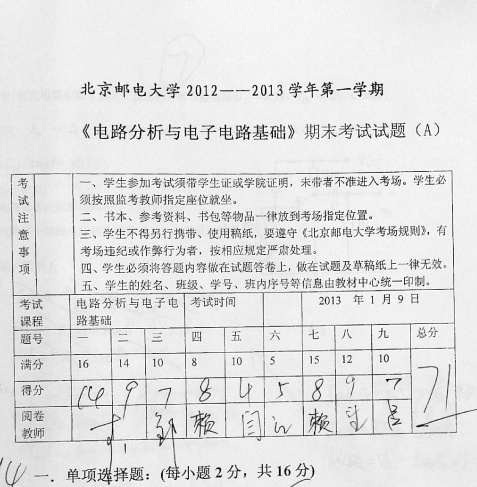 北京邮电大学 2012——2013 学年第一学期
《电路分析与电子电路基础》期末考试试题（A）
考试注意事项
一、学生参加考试须带学生证或学院证明，未带者不准进入考场。学生必
须按照监考教师指定座位就坐。
二、书本、参考资料、书包等物品一律放到考场指定位置。
三、学生不得另行携带、使用稿纸，要遵守《北京邮电大学考场规则》，有
考场违纪或作弊行为者，按相应规定严肃处理。
四、学生必须将答题内容做在试题答卷上，做在试题及草稿纸上一律无效。
五、学生的姓名、班级、学号、班内序号等信息由教材中心统一印制。
考试 电路分析与电子电 考试时间 2013 年 1 月 9 日
课程 路基础
题号 一 二 三 四 五 六 七 八 九 总分
满分 16 14 10 8 10 5 15 12 10
得分 14 9 7 8 4 5 8 9 7 71
阅卷 赖 闫 赖 吕
教师
14 一．单项选择题：(每小题 2 分，共 16 分)